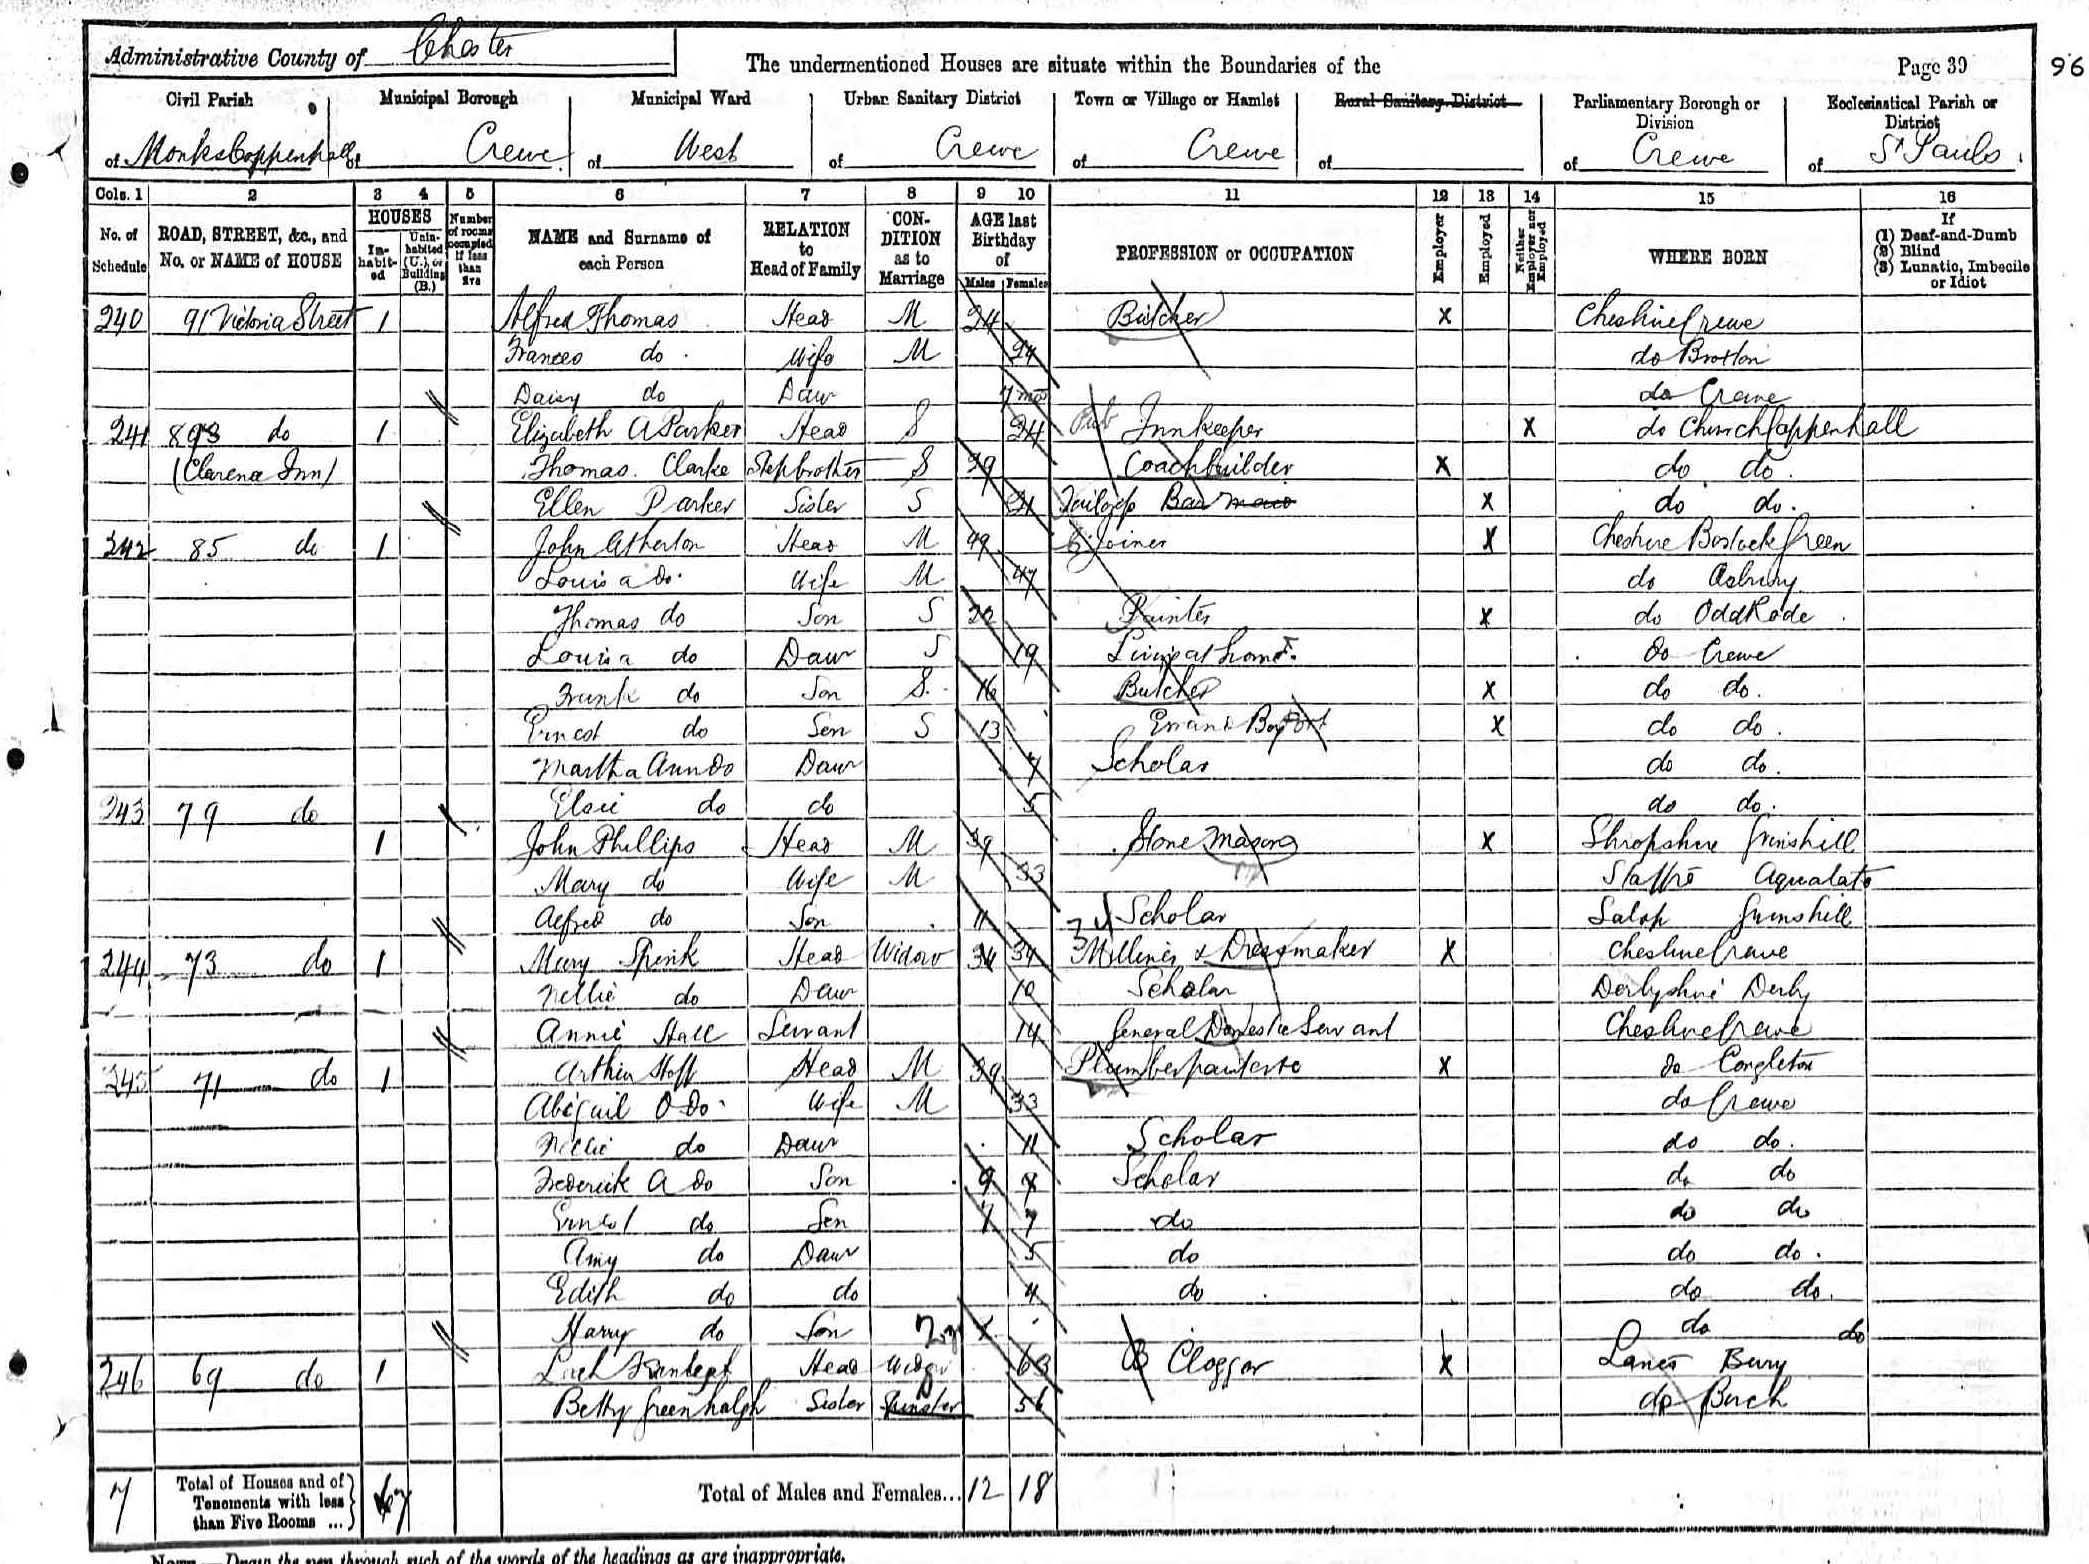 Administrative County of Chester
The undermentioned Houses are situate within the Boundaries of the
Page 39
96
Civil Parish of Monks Coppenhall
Municipal Borough of Crewe
Municipal Ward of West
Urban Sanitary District of Crewe
Town or Village or Hamlet of Crewe
Rural Sanitary District of
Parliamentary Borough or Division of Crewe
Ecclesiastical Parish or District of St Pauls
Cols. 1 2 3 4 5 6 7 8 9 10 11 12 13 14 15 16
No. of Schedule
ROAD, STREET, &c., and No. or NAME of HOUSE
HOUSES
In-habit-ed
Unin-habited (U.), or Building (B.)
Number of rooms occupied if less than five
NAME and Surname of each Person
RELATION to Head of Family
CON-DITION as to Marriage
AGE last Birthday of
Males Females
PROFESSION or OCCUPATION
Employer
Employed
Neither Employer nor Employed
WHERE BORN
If (1) Deaf-and-Dumb (2) Blind (3) Lunatic, Imbecile or Idiot
240 91 Victoria Street 1 Alfred Thomas Head M 24 Butcher X Cheshire Crewe
Frances do Wife M 24 do Broxton
Daisy do Daur 7 mo do Crewe
241 893 do 1 Elizabeth A Parker Head S 24 Pub Innkeeper X do Church Coppenhall
(Clarence Inn) Thomas Clarke Stepbrother S 39 Coachbuilder X do do
Ellen Parker Sister S 21 Bar maid X do do
242 85 do 1 John Atherton Head M 49 Joiner X Cheshire Bostock Green
Louisa do Wife M 47 do Astbury
Thomas do Son S 20 Painter X do Odd Rode
Louisa do Daur S 19 Living at home do Crewe
Frank do Son S 16 Butcher X do do
Ernest do Son S 13 Errand Boy Port X do do
Martha Ann do Daur 7 Scholar do do
243 79 do Elsie do do 5 do do
1 John Phillips Head M 39 Stone Mason X Shropshire Grinshill
Mary do Wife M 33 Staffs Aqualate
Alfred do Son 11 Scholar Salop Grinshill
244 73 do 1 Mary Spink Head Widow 34 34 Milliner & Dressmaker X Cheshire Crewe
Nellie do Daur 10 Scholar Derbyshire Derby
Annie Hall Servant 14 General Domestic Servant Cheshire Crewe
245 71 do 1 Arthur Head M 39 Plumber painter &c X do Congleton
Abigail O do Wife M 33 do Crewe
Nellie do Daur 11 Scholar do do
Frederick A do Son 9 Scholar do do
Ernest do Son 7 7 do do do
Amy do Daur 5 do do do
Edith do do 4 do do do
Harry do Son do do
246 69 do 1 Head Widow 63 Clogger X Lancs Bury
Betty Greenhalgh Sister Spinster S 56 do Birch
7 Total of Houses and of Tenements with less than Five Rooms ... 7
Total of Males and Females... 12 18
NOTE.—Draw the pen through such of the words of the headings as are inappropriate.